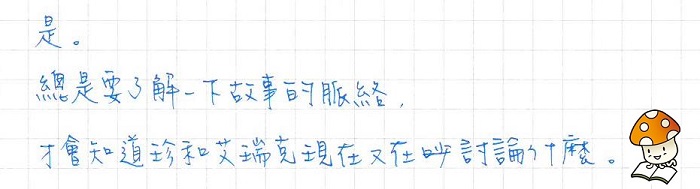 是。
總是要了解一下故事的脈絡,
才會知道珍和艾瑞克現在又在吵討論什麼。